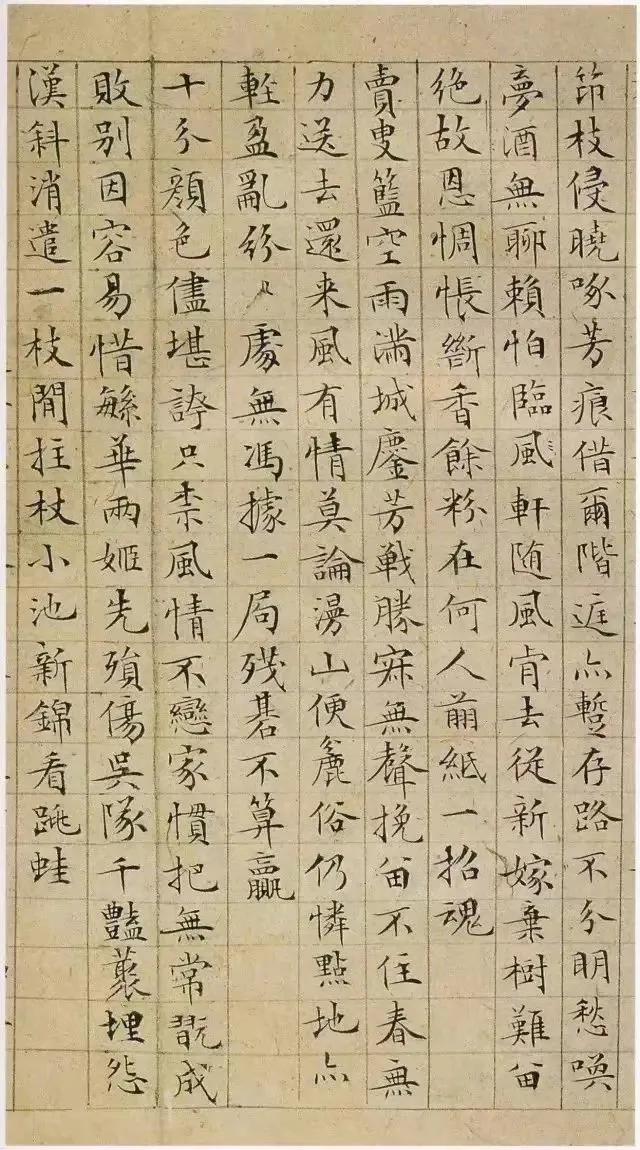 筇枝侵曉啄芳痕借爾階庭亦蹔存路不分明愁喚
夢酒無聊賴怕臨風軒随風肯去從新嫁棄樹難留
絶故恩惆悵斷香餘粉在何人剪紙一招魂
賣叟籃空雨滿城鏖芳戰勝寂無聲挽留不住春無
力送去還来風有情莫論漫山便麁俗仍憐點地亦
輕盈亂紛〃處無馮據一局殘碁不算贏
十分顔色儘堪誇只柰風情不戀家慣把無常翫成
敗别因容易惜繁華兩姬先殞傷吳隊千豔叢埋怨
漢斜消遣一枝閒拄杖小池新錦看跳蛙